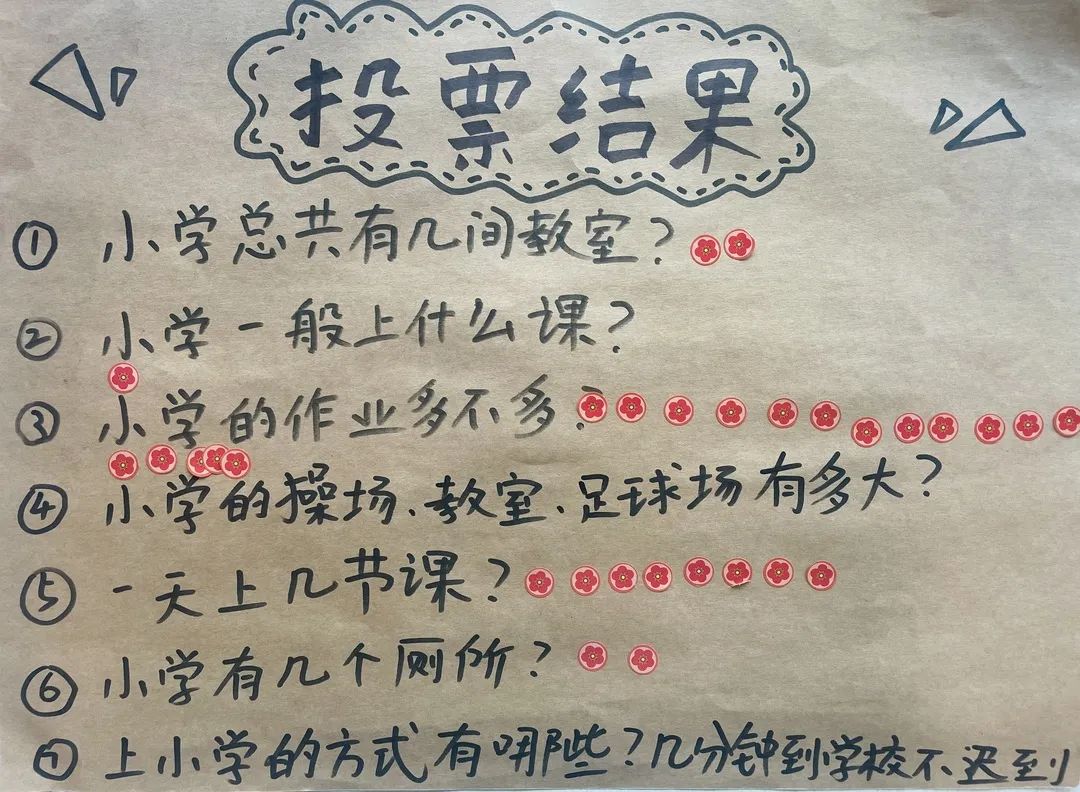 投票结果
① 小学总共有几间教室？
② 小学一般上什么课？
③ 小学的作业多不多？
④ 小学的操场、教室、足球场有多大？
⑤ 一天上几节课？
⑥ 小学有几个厕所？
⑦ 上小学的方式有哪些？几分钟到学校不迟到